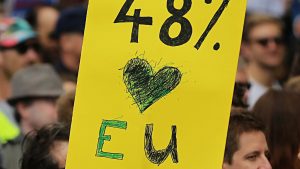 48%
EU